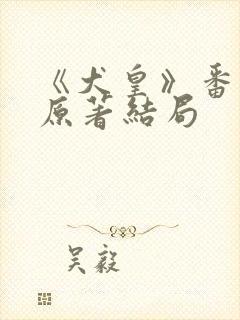 《犬皇》番
原著結局
吴毅